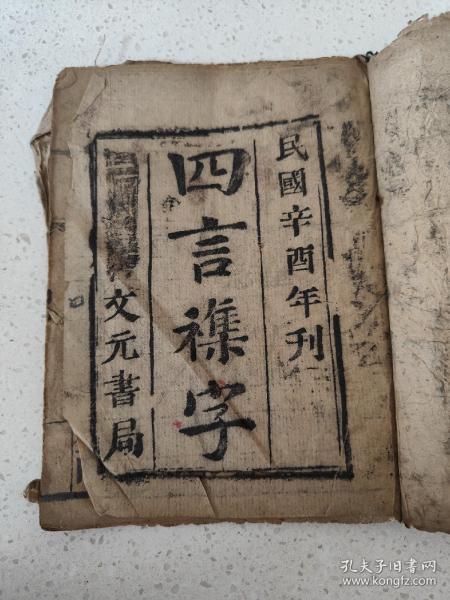 民國辛酉年刊
四言襍字
文元書局
孔夫子旧书网
www.kongfz.com